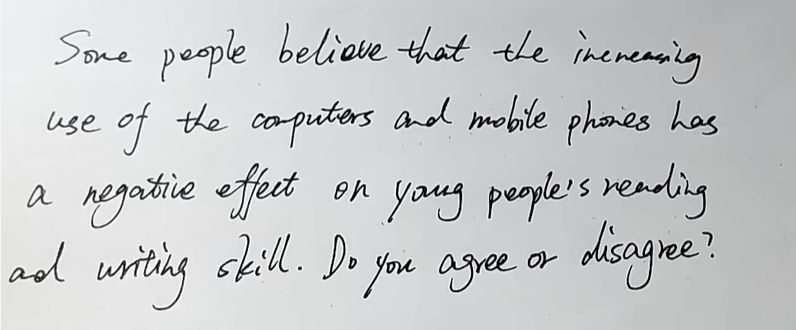 Some people believe that the increasing
use of the computers and mobile phones has
a negative effect on young people's reading
and writing skill. Do you agree or disagree?